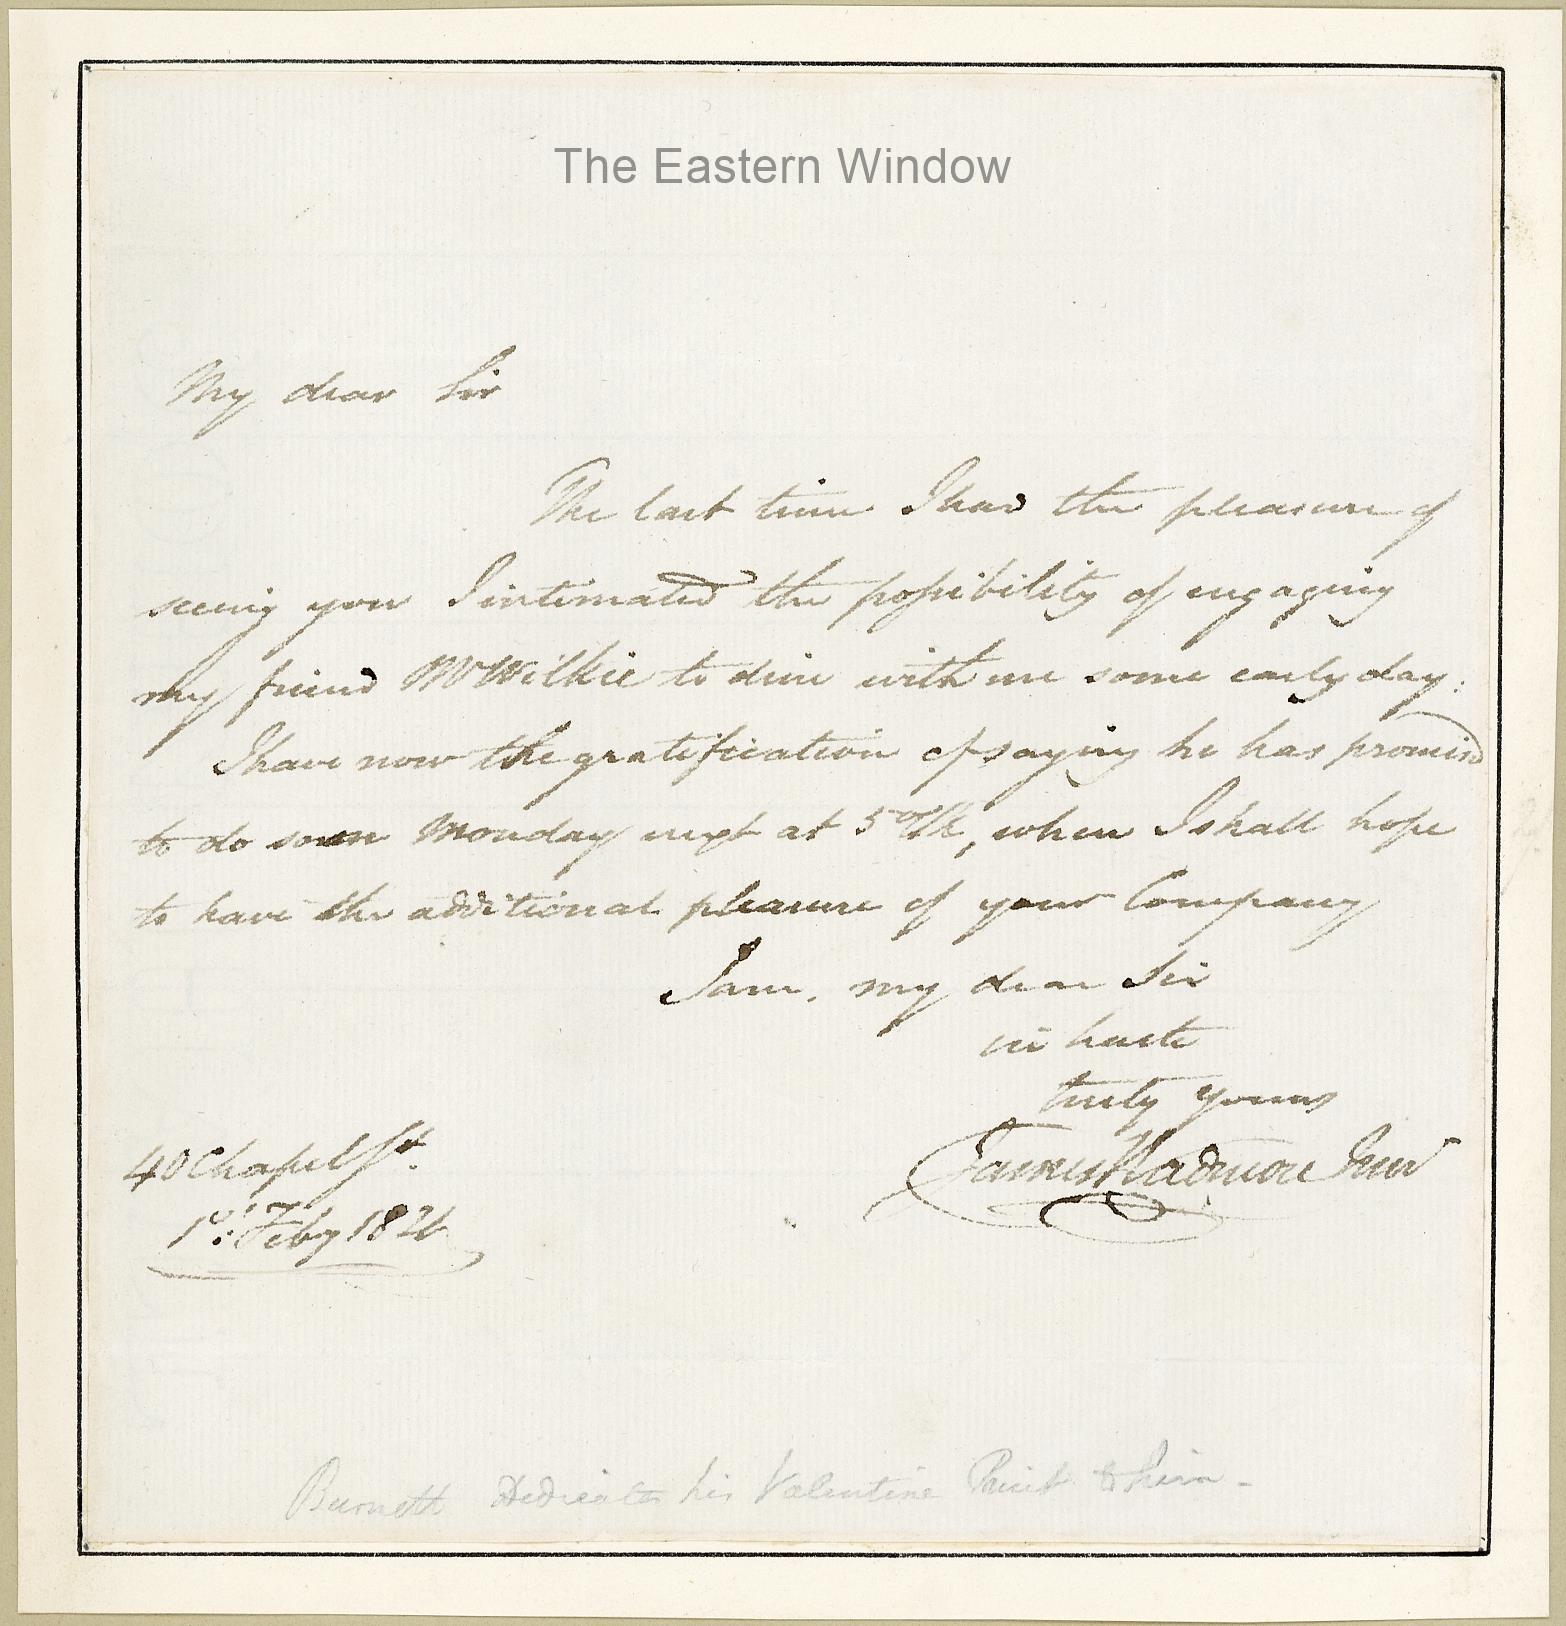 The Eastern Window
My dear Sir
The last time I had the pleasure of
seeing you I intimated the possibility of engaging
my friend Mr Wilkie to dine with me some early day:
I have now the gratification of saying he has promised
to do so on Monday next at 5 o'Clk, when I shall hope
to have the additional pleasure of your Company
I am, my dear Sir
in haste
truly yours
James Stadmore Junr
40 Chapel St.
1st Feby 1826
Burnett dedicates his Valentine Print to him -